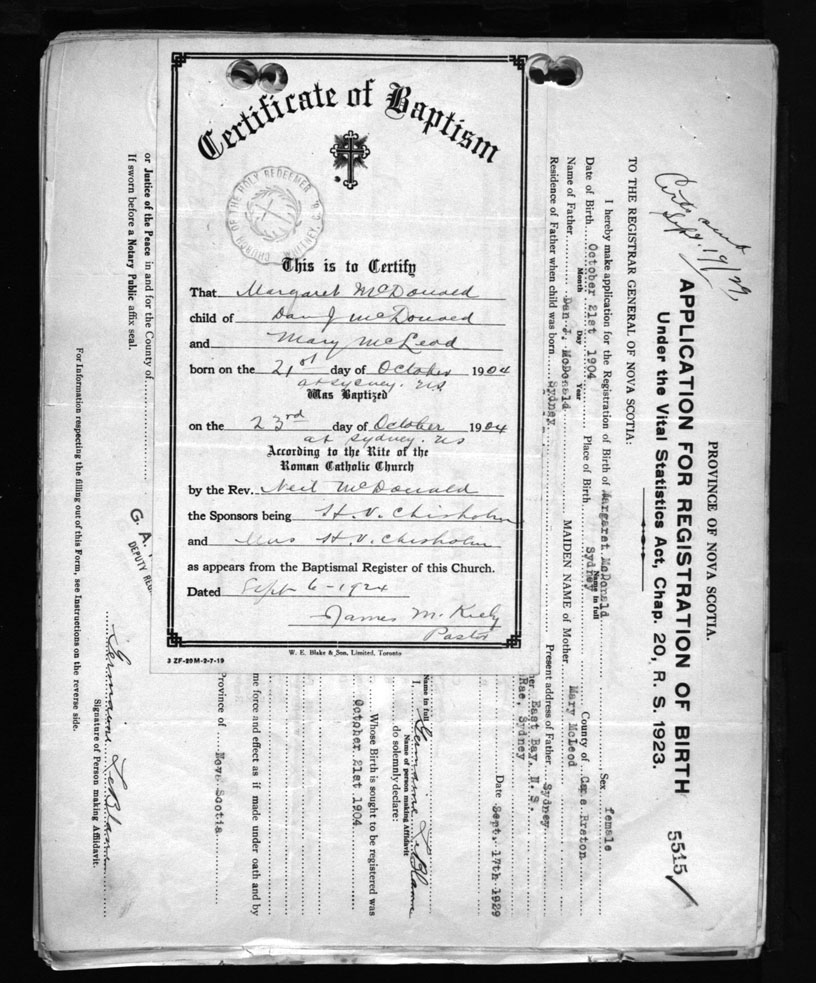 Certificate of Baptism
CHURCH OF THE HOLY REDEEMER
This is to Certify
That Margaret McDonald
child of Dan J McDonald
and Mary McLeod
born on the 21st day of October 1904
at Sydney. NS
Was Baptized
on the 23rd day of October 1904
at Sydney. NS
According to the Rite of the
Roman Catholic Church
by the Rev. Neil McDonald
the Sponsors being H. V. Chisholm
and Mrs H. V. Chisholm
as appears from the Baptismal Register of this Church.
Dated Sept 6 - 1924
James M. Kiely
Pastor
W. E. Blake & Son, Limited, Toronto
3 ZF-20M-2-7-19
Sept. 19/29
PROVINCE OF NOVA SCOTIA.
APPLICATION FOR REGISTRATION OF BIRTH 5515
Under the Vital Statistics Act, Chap. 20, R. S. 1923.
TO THE REGISTRAR GENERAL OF NOVA SCOTIA:
I hereby make application for the Registration of Birth of Margaret McDonald Sex female
Name in full
Date of Birth October 21st 1904 Place of Birth Sydney County of Cape Breton
Month Day Year
Name of Father Dan J. McDonald MAIDEN NAME of Mother Mary McLeod
Residence of Father when child was born Sydney Present address of Father Sydney
East Bay, N. S.
Rae, Sydney
Date Sept. 17th 1929
Name in full
I, Germaine LeBlanc
Name of person making Affidavit
do solemnly declare:
Whose Birth is sought to be registered was
October 21st 1904
me force and effect as if made under oath and by
Province of Nova Scotia
G. A.
DEPUTY
or Justice of the Peace in and for the County of
If sworn before a Notary Public affix seal.
Germaine LeBlanc
Signature of Person making Affidavit.
For Information respecting the filling out of this Form, see Instructions on the reverse side.